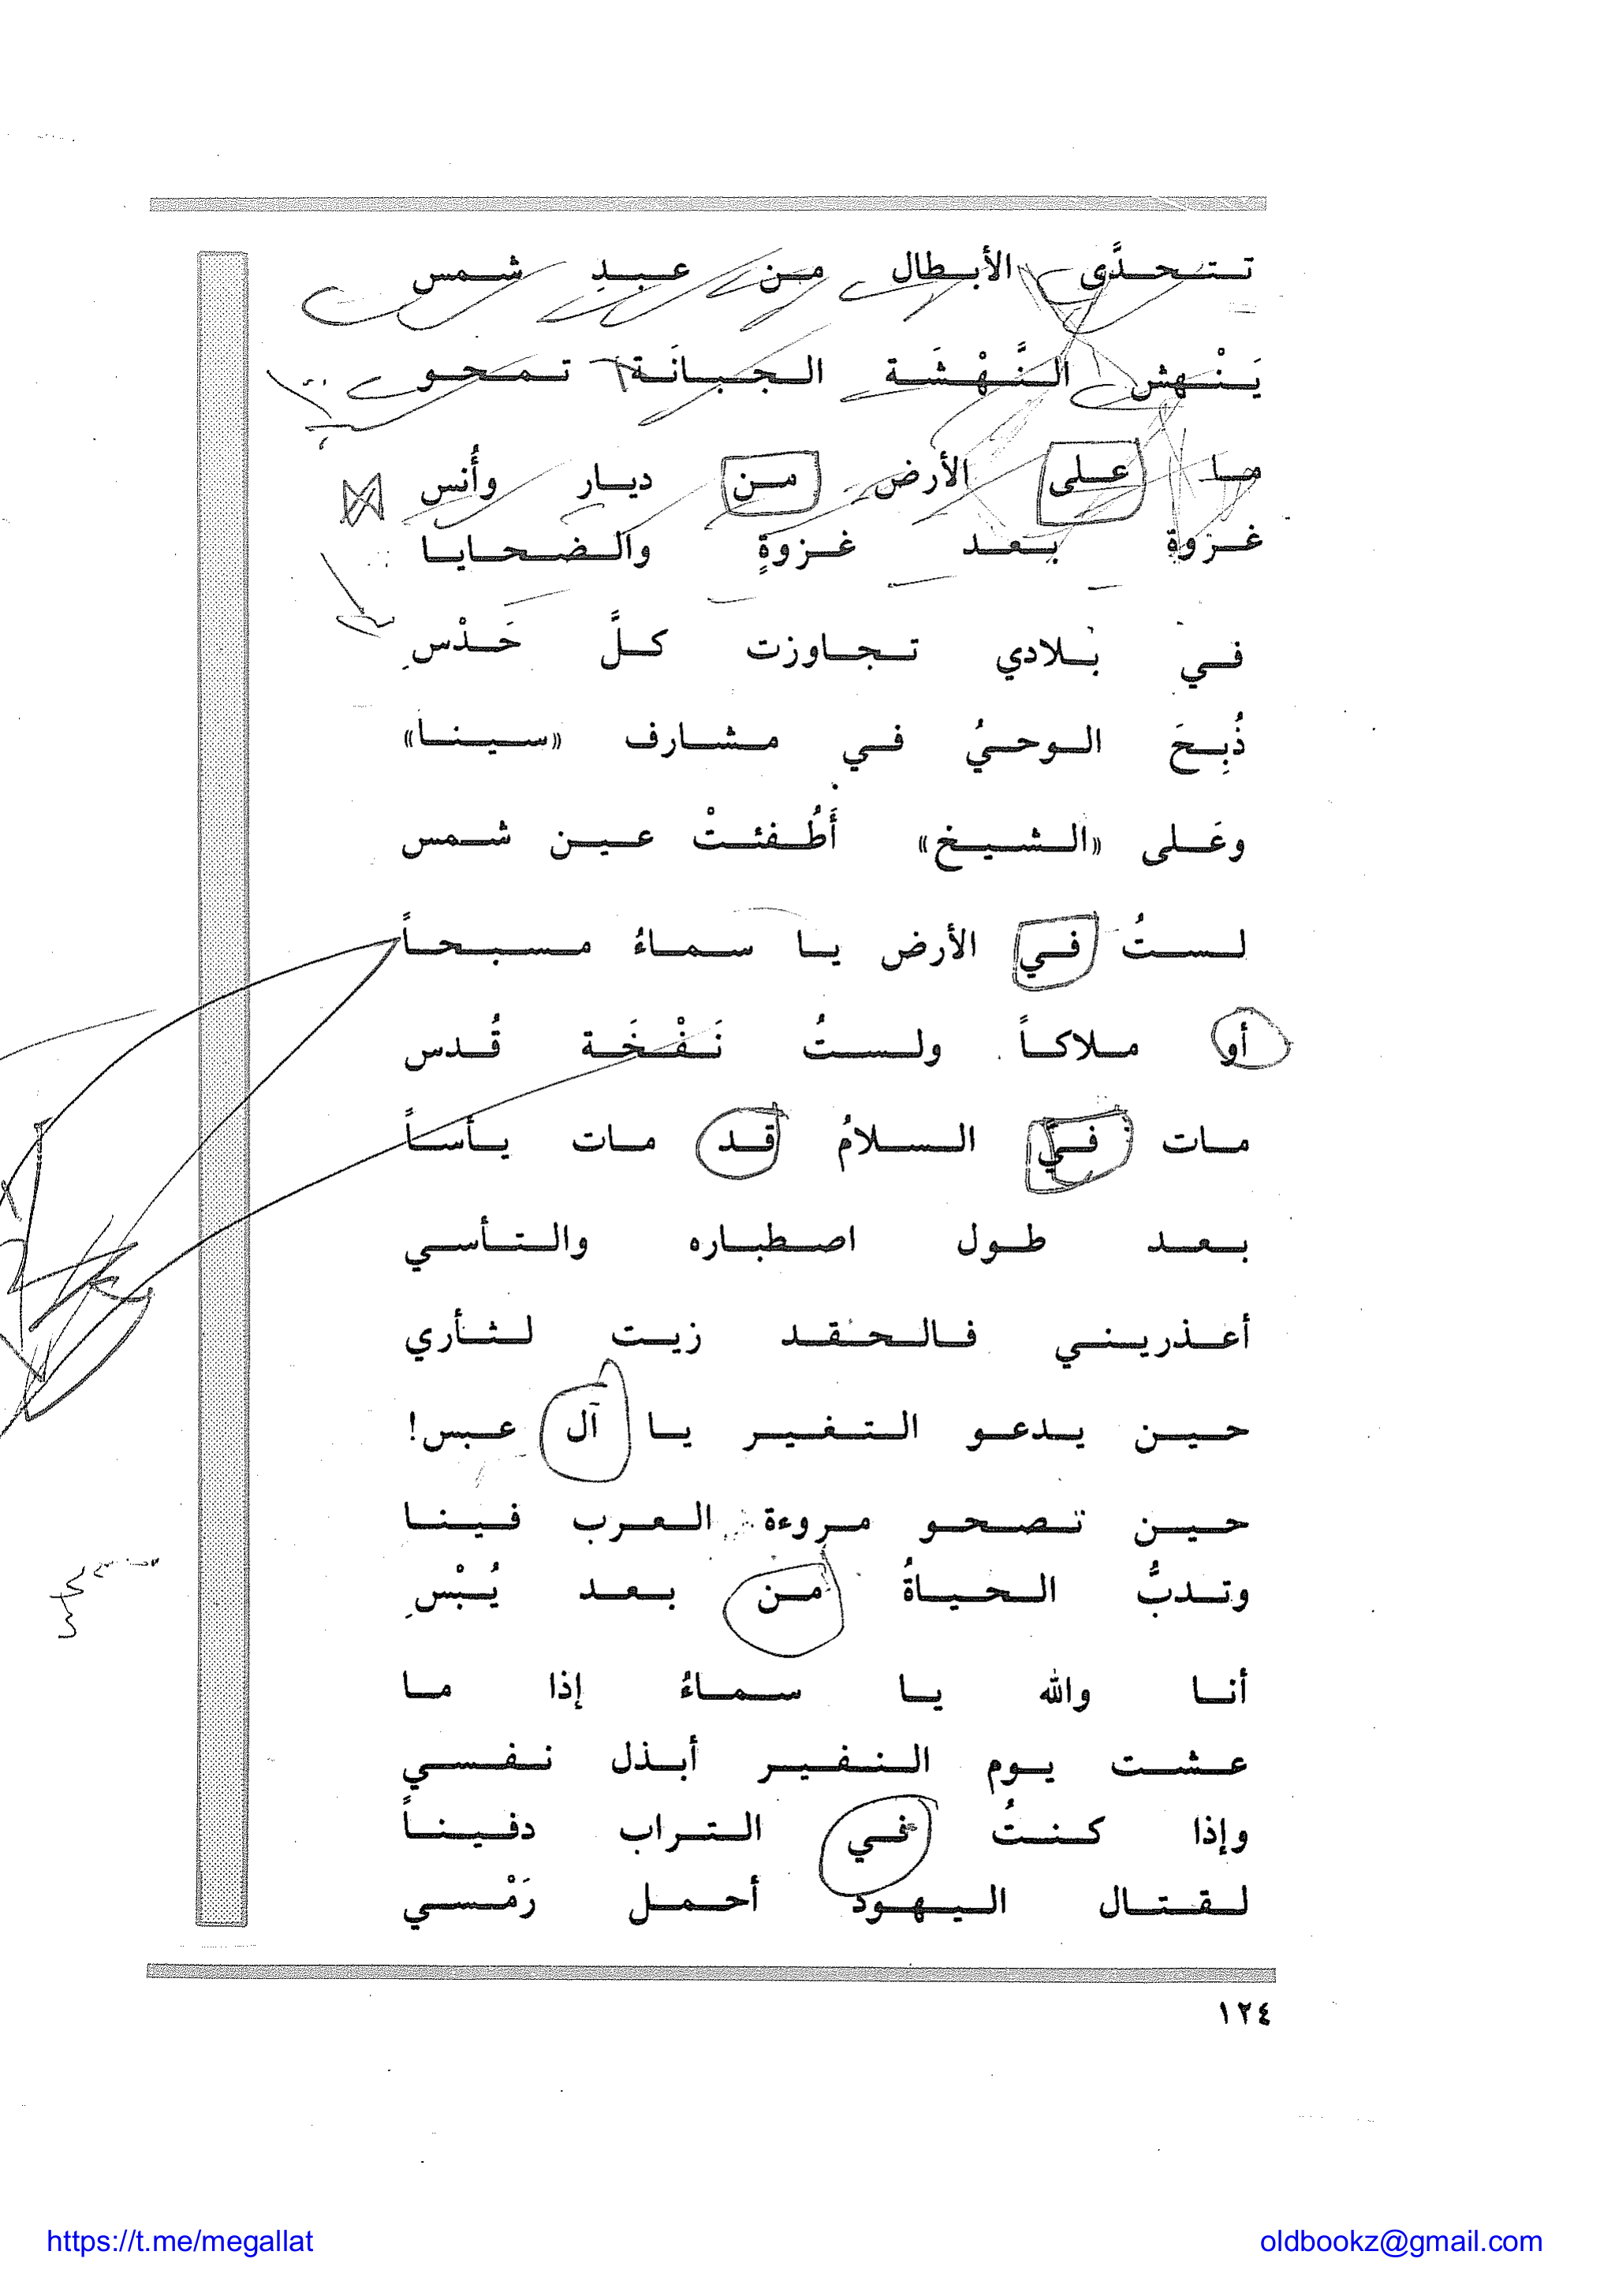 تتحدَّى الأبطال من عبدِ شمس
يَنْهش النَّهْشَة الجبانَة تمحو
ما على الأرض من ديار وأُنس
غزوة بعد غزوةٍ والضحايا
في بلادي تجاوزت كلَّ حَدْسِ
ذُبِحَ الوحيُ في مشارف «سينا»
وعَلى «الشيخ» أَطُفئتْ عين شمس
لستُ في الأرض يا سماءُ مسبحاً
أو ملاكاً ولستُ نَفْخَة قُدس
مات فيَّ السلامُ قد مات يأساً
بعد طول اصطباره والتأسي
أعذريني فالحقد زيت لثأري
حين يدعو التفير يا آل عبس!
حين تصحو مروءة العرب فينا
وتدبُّ الحياةُ من بعد يُبْسِ
أنا والله يا سماءُ إذا ما
عشت يوم النفير أبذل نفسي
وإذا كنتُ في التراب دفيناً
لقتال اليهود أحمل رَمْسي
١٢٤
https://t.me/megallat
oldbookz@gmail.com